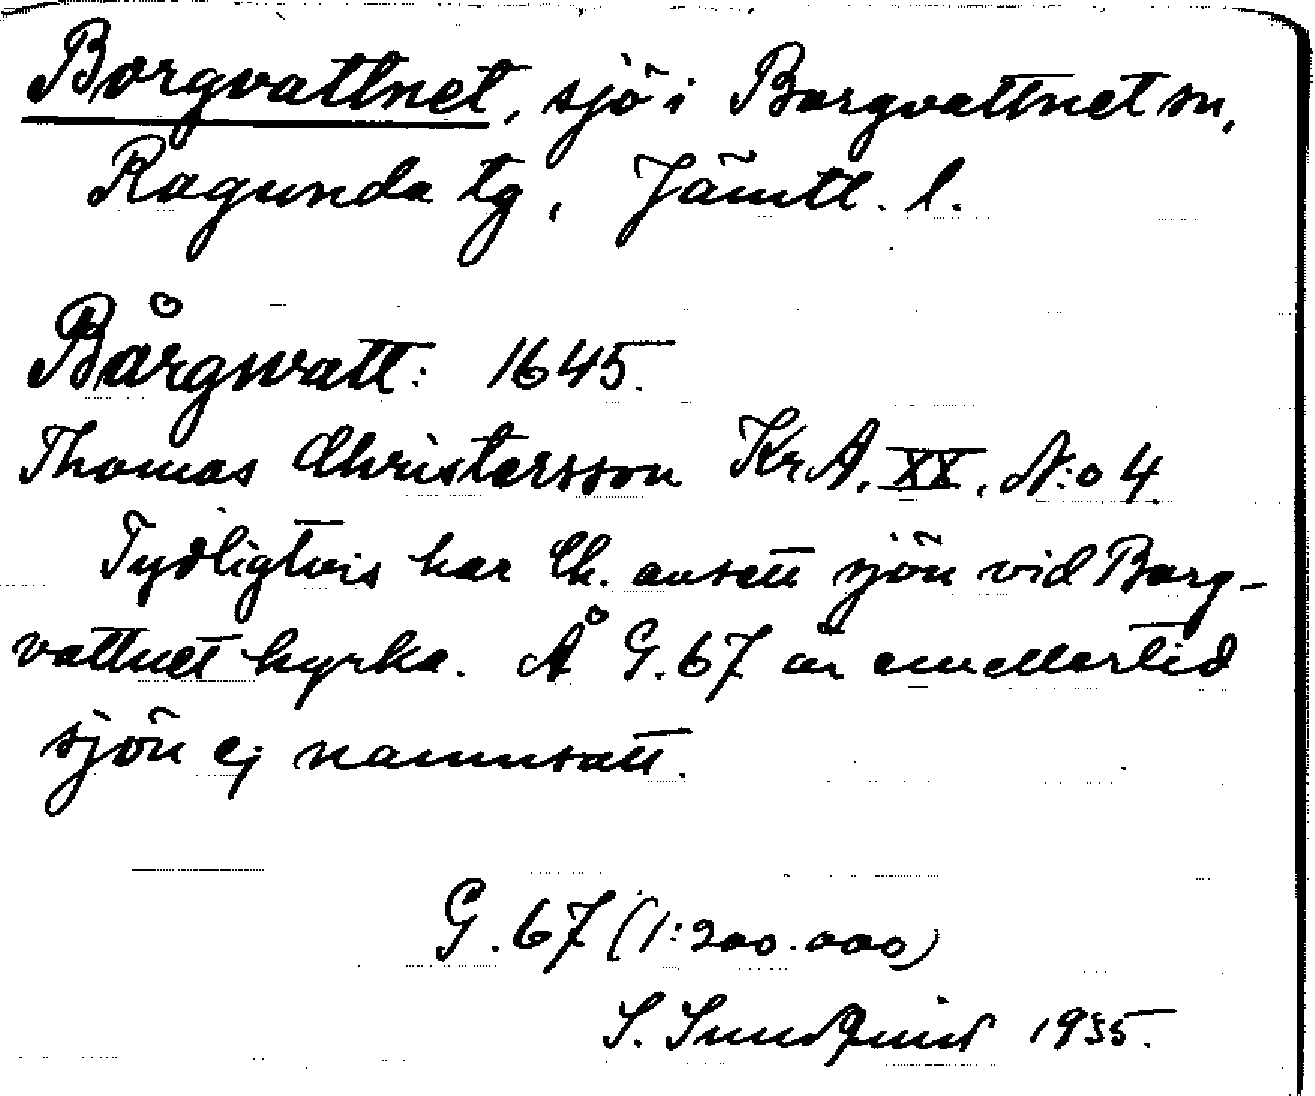 Borgvattnet, sjö i Borgvattnet sn,
Ragunda tg, Jämtl. l.
Bårgwatt: 1645.
Thomas Christersson KrA, XX, N:o 4.
Tydligtvis har Ch. avsett sjön vid Borg-
vattnet kyrka. Å G.67 är emellertid
sjön ej namnsatt.
G.67 (1:200.000)
S. Sundquist 1935.